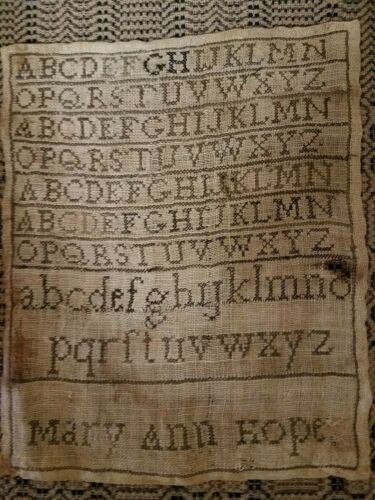 ABCDEFGHIJKLMN
OPQRSTUVWXYZ
ABCDEFGHIJKLMN
OPQRSTUVWXYZ
ABCDEFGHIJKLMN
ABCDEFGHIJKLMN
OPQRSTUVWXYZ
abcdefghijklmno
pqrſtuvwxyz
Mary Ann Hope.